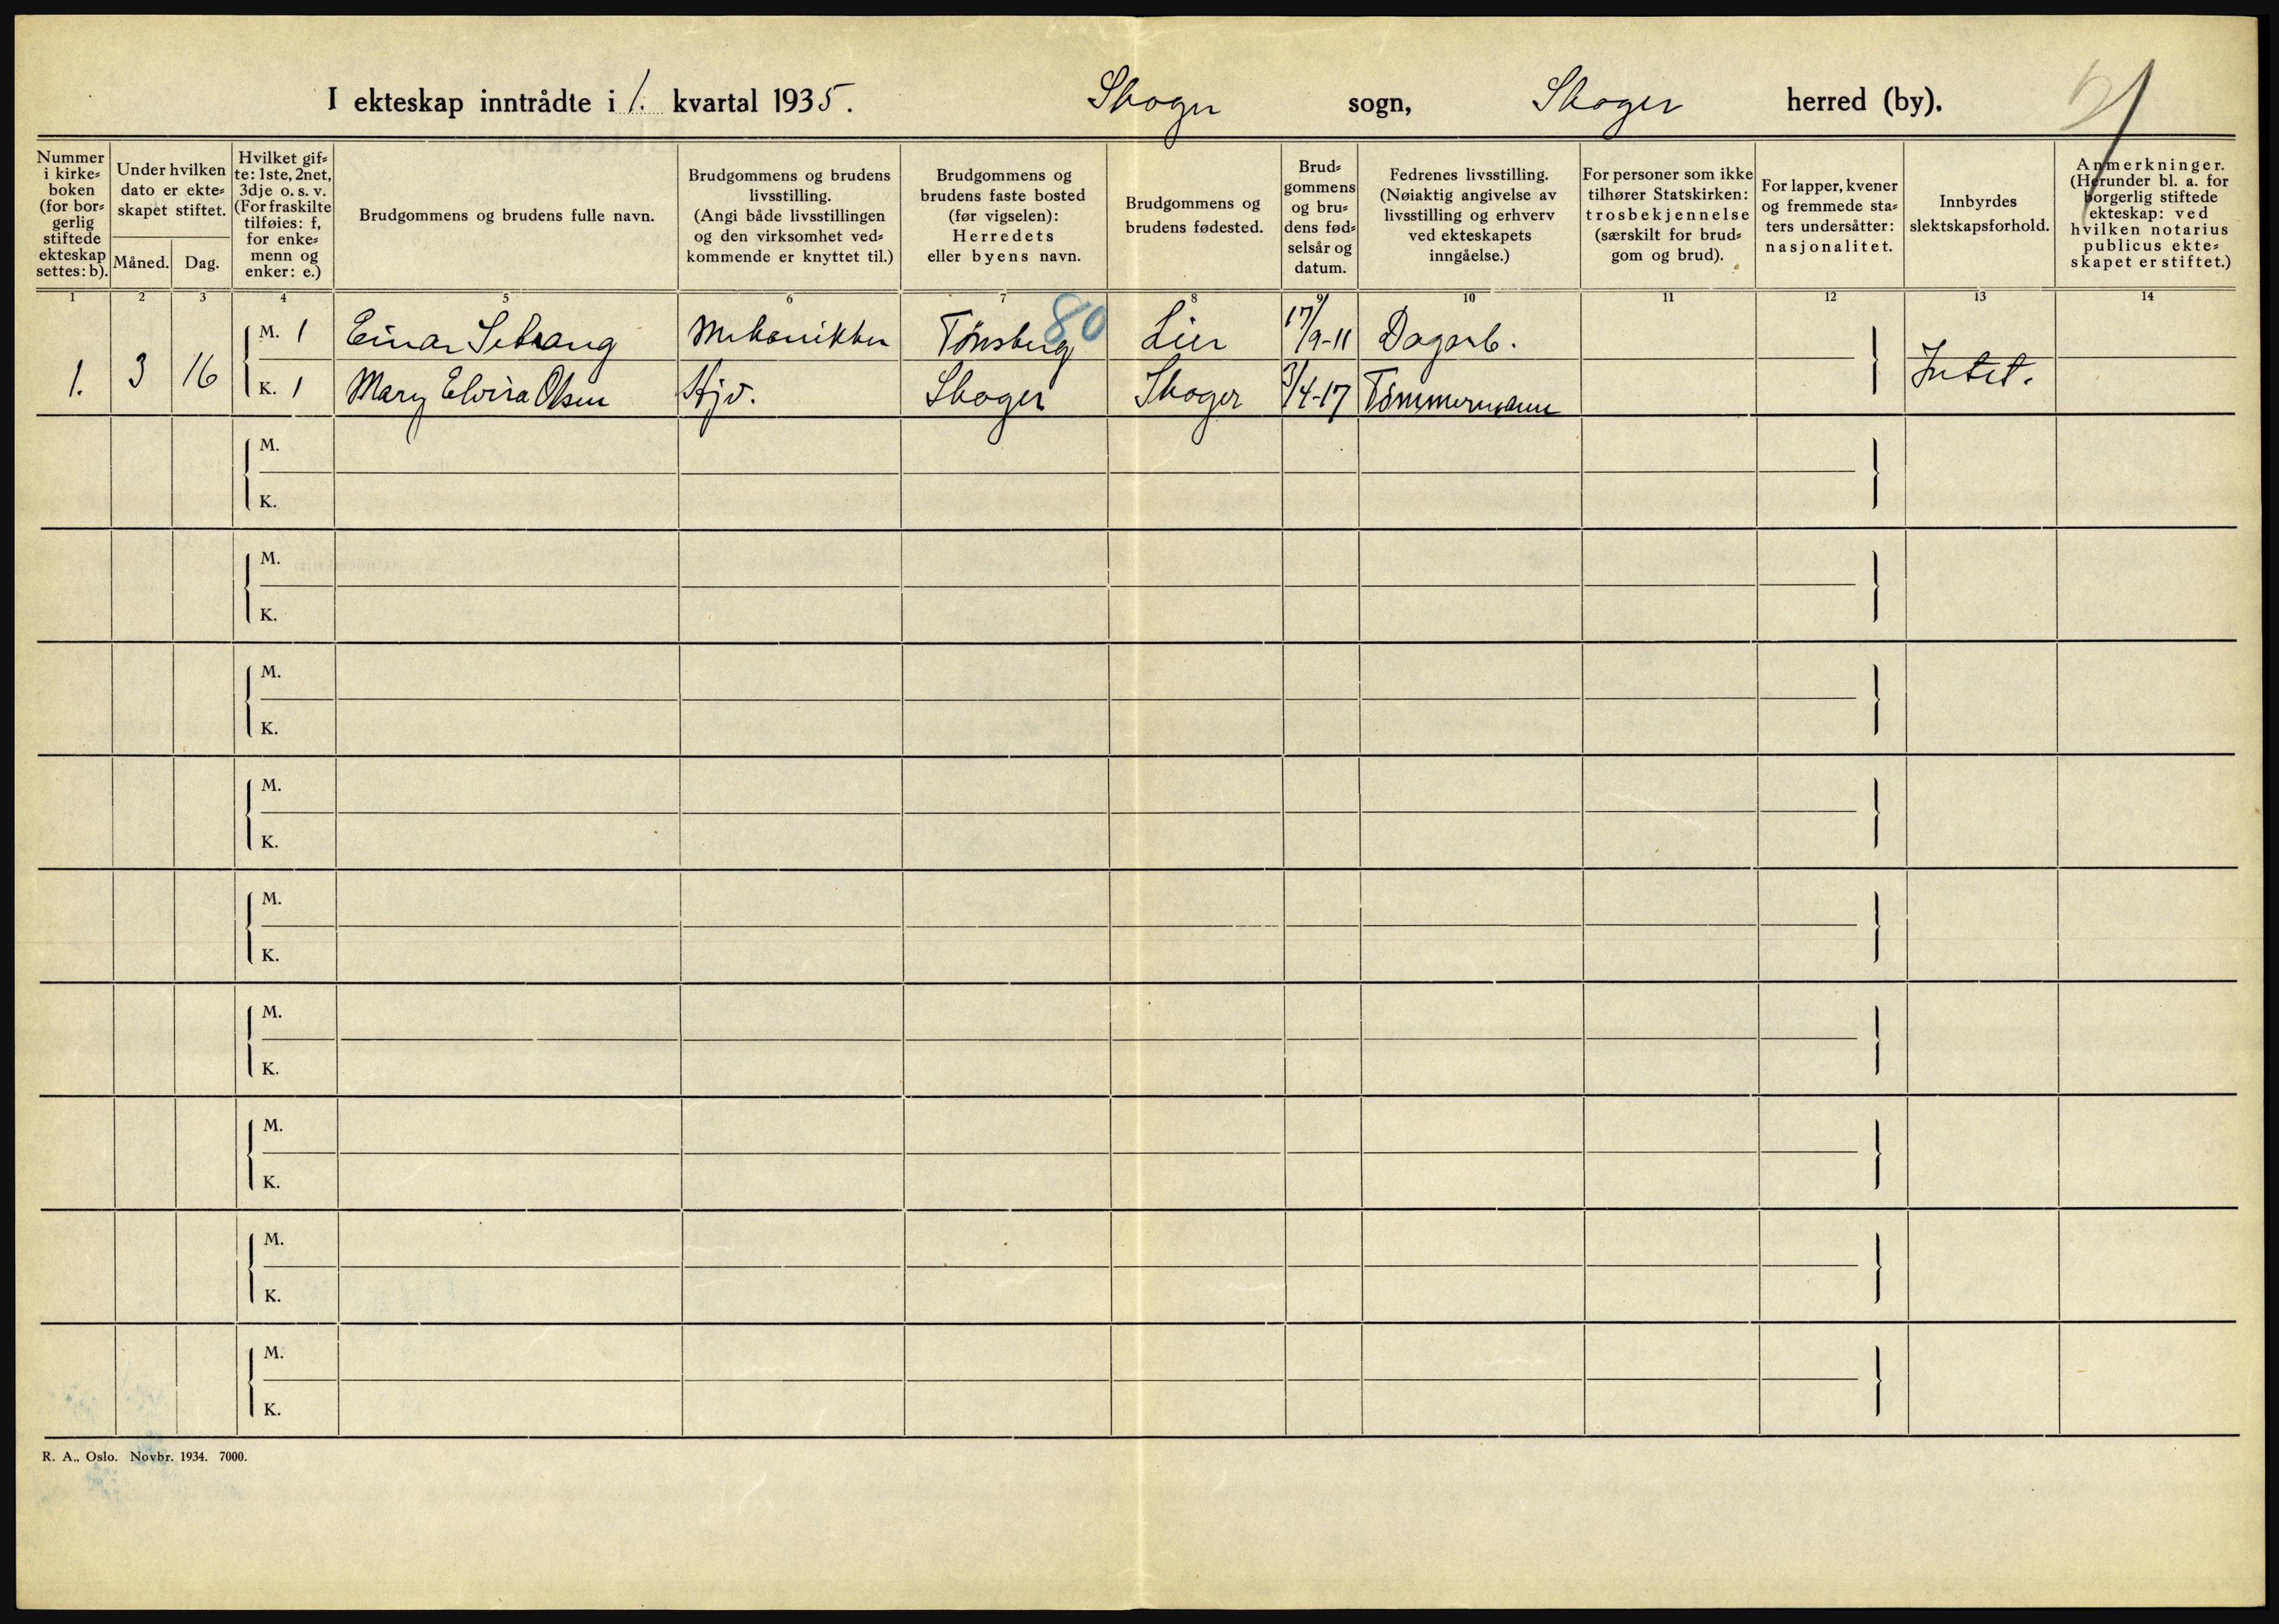 I ekteskap inntrådte i 1. kvartal 1935. Skoger sogn, Skoger herred (by).
Nummer i kirke=boken (for bor=gerlig stiftede ekteskap settes: b).
Under hvilken dato er ekte=skapet stiftet.
Måned.
Dag.
Hvilket gif=te: 1ste, 2net, 3dje o. s. v. (For fraskilte tilføies: f, for enke=menn og enker: e.)
Brudgommens og brudens fulle navn.
Brudgommens og brudens livsstilling. (Angi både livsstillingen og den virksomhet ved=kommende er knyttet til.)
Brudgommens og brudens faste bosted (før vigselen): Herredets eller byens navn.
Brudgommens og brudens fødested.
Brud=gommens og bru=dens fød=selsår og datum.
Fedrenes livsstilling. (Nøiaktig angivelse av livsstilling og erhverv ved ekteskapets inngåelse.)
For personer som ikke tilhører Statskirken: trosbekjennelse (særskilt for brud=gom og brud).
For lapper, kvener og fremmede sta=ters undersåtter: nasjonalitet.
Innbyrdes slektskapsforhold.
Anmerkninger. (Herunder bl. a. for borgerlig stiftede ekteskap: ved hvilken notarius publicus ekte=skapet er stiftet.)
1 2 3 4 5 6 7 8 9 10 11 12 13 14
80
M. 1 Einar Mekanikker Tönsberg Lier 17/9-11 Dagarb.
1. 3 16
K. 1 Mary Elvira Olsen Hjv. Skoger Skoger 3/4-17 Tömmermann Intet.
M.
K.
M.
K.
M.
K.
M.
K.
M.
K.
M.
K.
M.
K.
M.
K.
M.
K.
R. A., Oslo. Novbr. 1934. 7000.